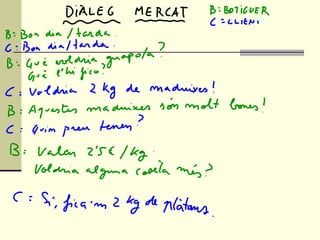 DIÀLEG MERCAT
B: BOTIGUER
C = CLIENT
B: Bon dia / tarda.
C: Bon dia / tarda.
B: Què voldria, guapo/a?
Què l'hi fico?
C: Voldria 2 kg de maduixes!
B: Aquestes maduixes són molt bones!
C: Quin preu tenen?
B: Valen 2'5 € / kg.
Voldria alguna coseta més?
C: Sí, fica'm 2 kg de plàtans.